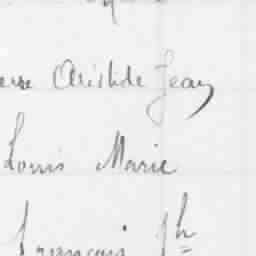 erre Aristide Jean
Louis Marie
François Jh